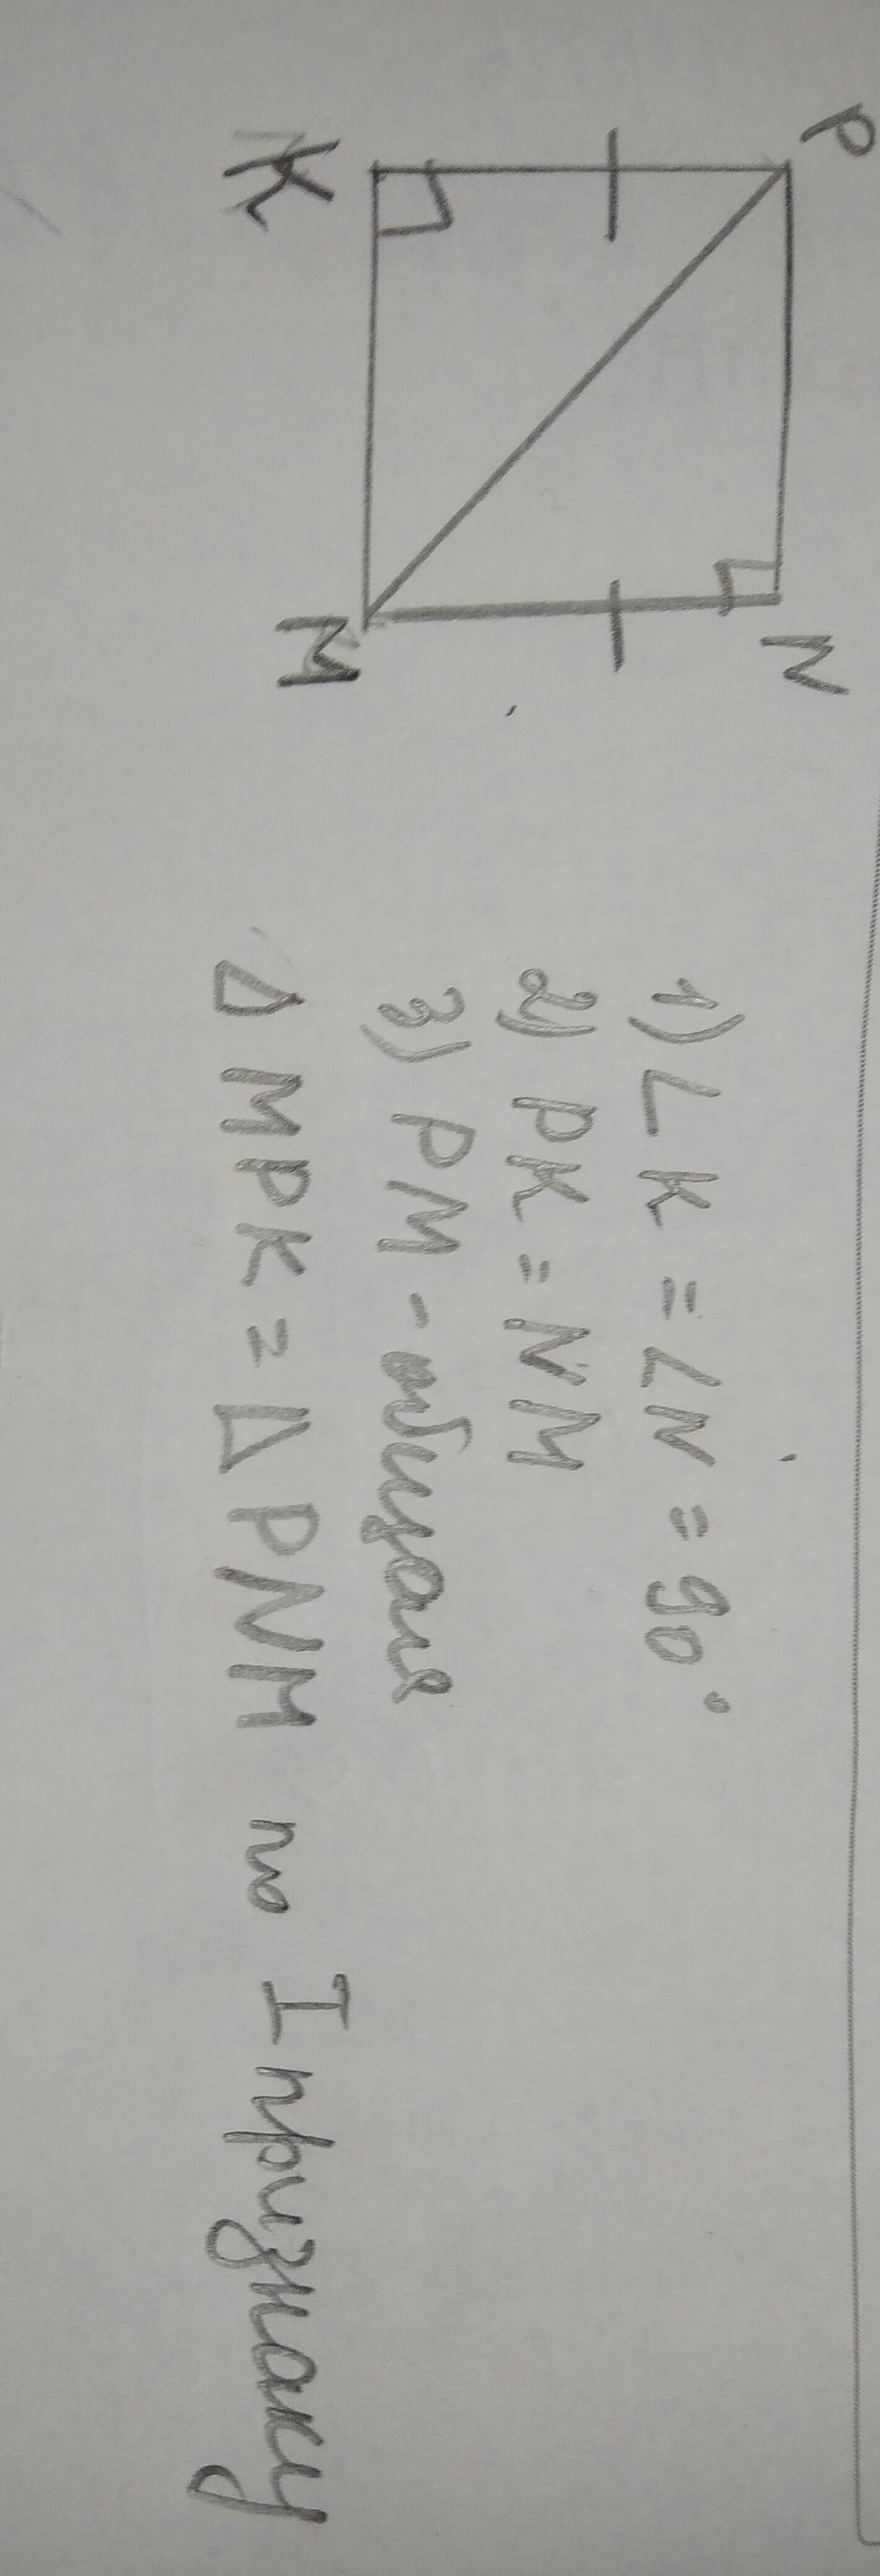 P
N
K
M
1) ∠K = ∠N = 90°
2) PK = NM
3) PM - общая
Δ MPK = Δ PNM по I признаку